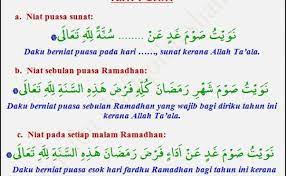 a. Niat puasa sunat:
نَوَيْتُ صَوْمَ غَدٍ عَنْ ........ سُنَّةً لِلّٰهِ تَعَالَى
Daku berniat puasa pada hari ......, sunat kerana Allah Ta'ala.
b. Niat sebulan puasa Ramadhan:
نَوَيْتُ صَوْمَ شَهْرِ رَمَضَانَ كُلِّهِ فَرْضَ هَذِهِ السَّنَةِ لِلّٰهِ تَعَالَى
Daku berniat puasa sebulan Ramadhan yang wajib bagi diriku tahun ini
kerana Allah Ta'ala.
c. Niat pada setiap malam Ramadhan:
نَوَيْتُ صَوْمَ غَدٍ عَنْ أَدَاءِ فَرْضَ رَمَضَانَ هَذِهِ السَّنَةِ لِلّٰهِ تَعَالَى
Daku berniat puasa esok hari fardhu Ramadhan bagi tahun ini kerana